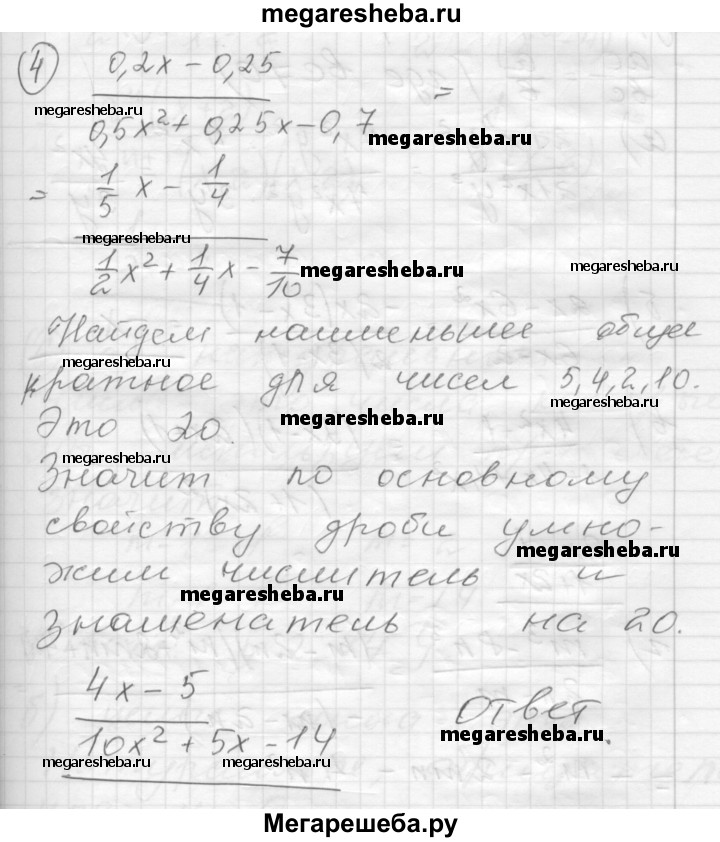 megaresheba.ru
④ 0,2x – 0,25
=
megaresheba.ru
0,5x² + 0,25x – 0,7
megaresheba.ru
= 1/5 x – 1/4
megaresheba.ru
1/2 x² + 1/4 x – 7/10
megaresheba.ru
megaresheba.ru
Найдем наименьшее общее
megaresheba.ru
кратное для чисел 5,4,2,10.
megaresheba.ru
Это 20.
megaresheba.ru
Значит по основному
свойству дроби умно-
megaresheba.ru
жим числитель и
megaresheba.ru
знаменатель на 20.
4x – 5
Ответ.
10x² + 5x – 14
megaresheba.ru
megaresheba.ru
megaresheba.ru
Мегарешеба.ру